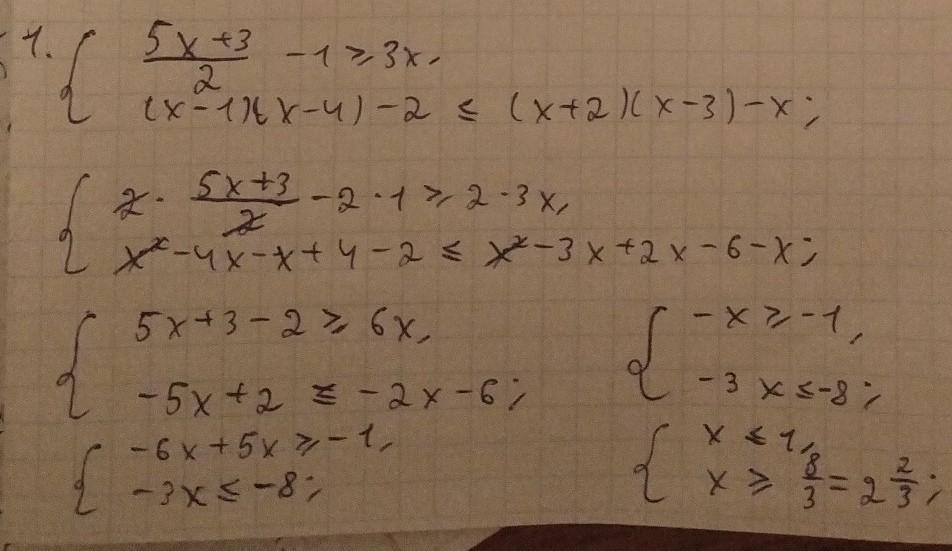 1. { (5x+3)/2 - 1 ≥ 3x,
(x-1)(x-4) - 2 ≤ (x+2)(x-3) - x;
{ 2 · (5x+3)/2 - 2 · 1 ≥ 2 · 3x,
x² - 4x - x + 4 - 2 ≤ x² - 3x + 2x - 6 - x;
{ 5x + 3 - 2 ≥ 6x,
-5x + 2 ≤ -2x - 6;
{ -6x + 5x ≥ -1,
-3x ≤ -8;
{ -x ≥ -1,
-3x ≤ -8;
{ x ≤ 1,
x ≥ 8/3 = 2 2/3;